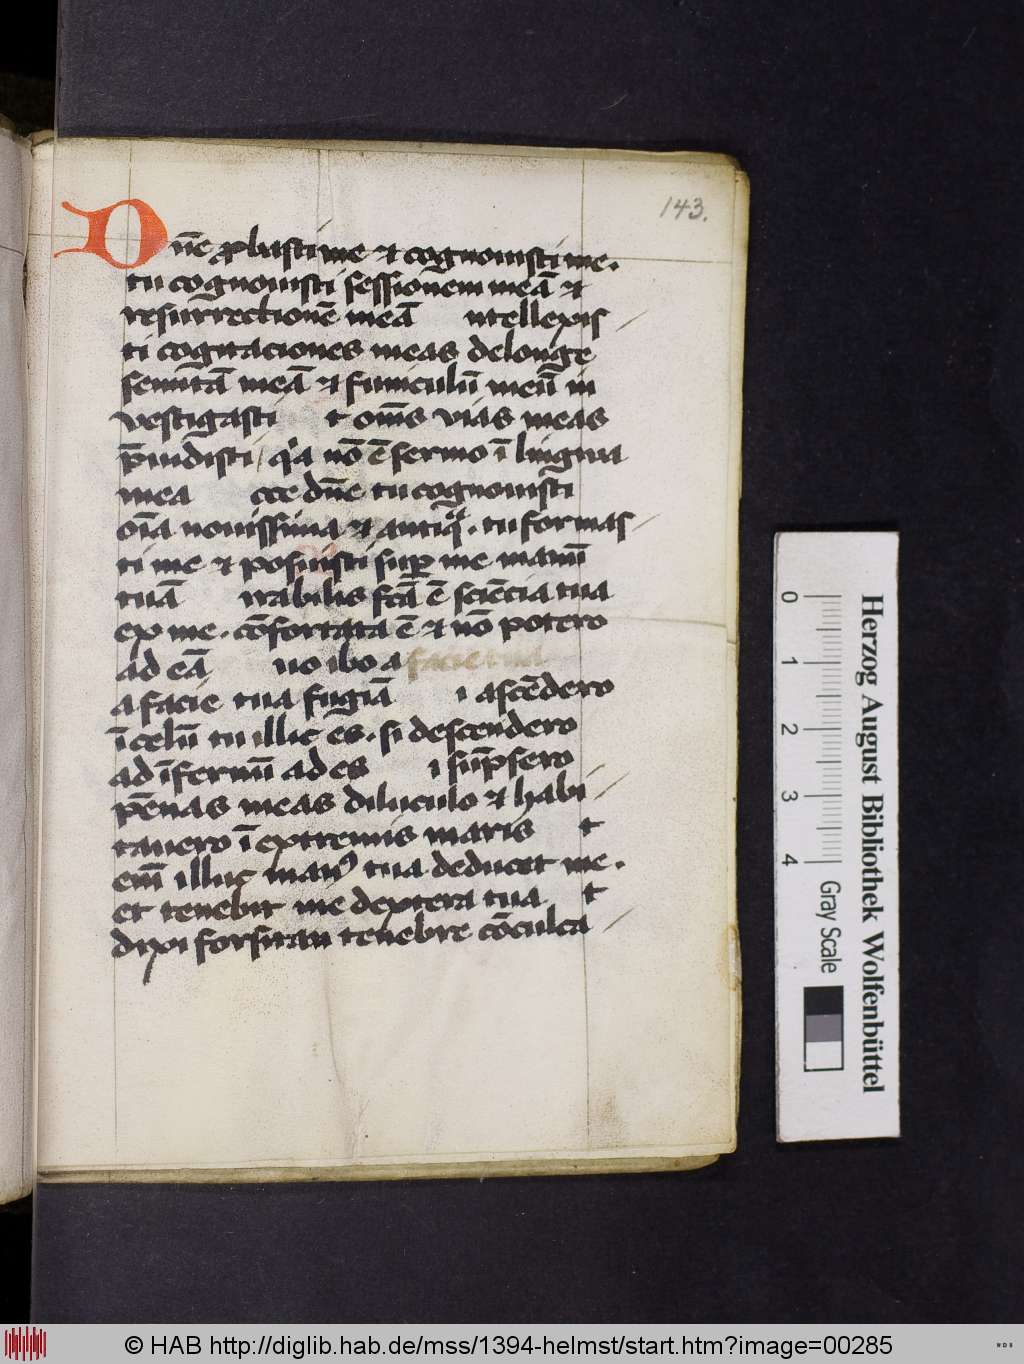 143.
Dn̄e ꝓbasti me et cognouisti me.
tu cognouisti sessionem meā et
resurrectionē meā ntellexis
ti cogitaciones meas de longe
semitā meā et funiculū meū in
vestigasti t om̄s vias meas
p̄uidisti / qͥa nō ē sermo ī lingwa
mea cce dn̄e tu cognouisti
oīa nouissima et antiqͣ. tu formas
ti me et posuisti suꝑ me manū
tuā irabilis fcā ē sciēcia tua
ex me. cōfortata ē et nō potero
ad eā uo ibo a facie tua
a facie tua fugiā i ascēdero
ī celū tu illic es. si descendero
ad īfernū ades i sūpsero
pēnas meas diluculo et habi
tauero ī extremis maris t
em̄ illuc manꝰ tua deducet me.
et tenebit me dextera tua t
dixi forsitan tenebre cōculca
0
1
2
3
4
Gray Scale
Herzog August Bibliothek Wolfenbüttel
© HAB http://diglib.hab.de/mss/1394-helmst/start.htm?image=00285